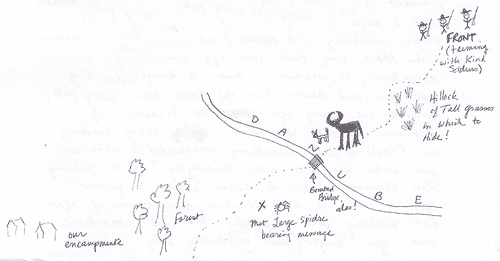 FRONT
(teeming
with
Hillock
of Tall grasses
in which to
Hide!
D
A
C
B
E
Bombed
Bridge,
alas!
X
met Large Spidre
bearing message
Forest
our
encampments